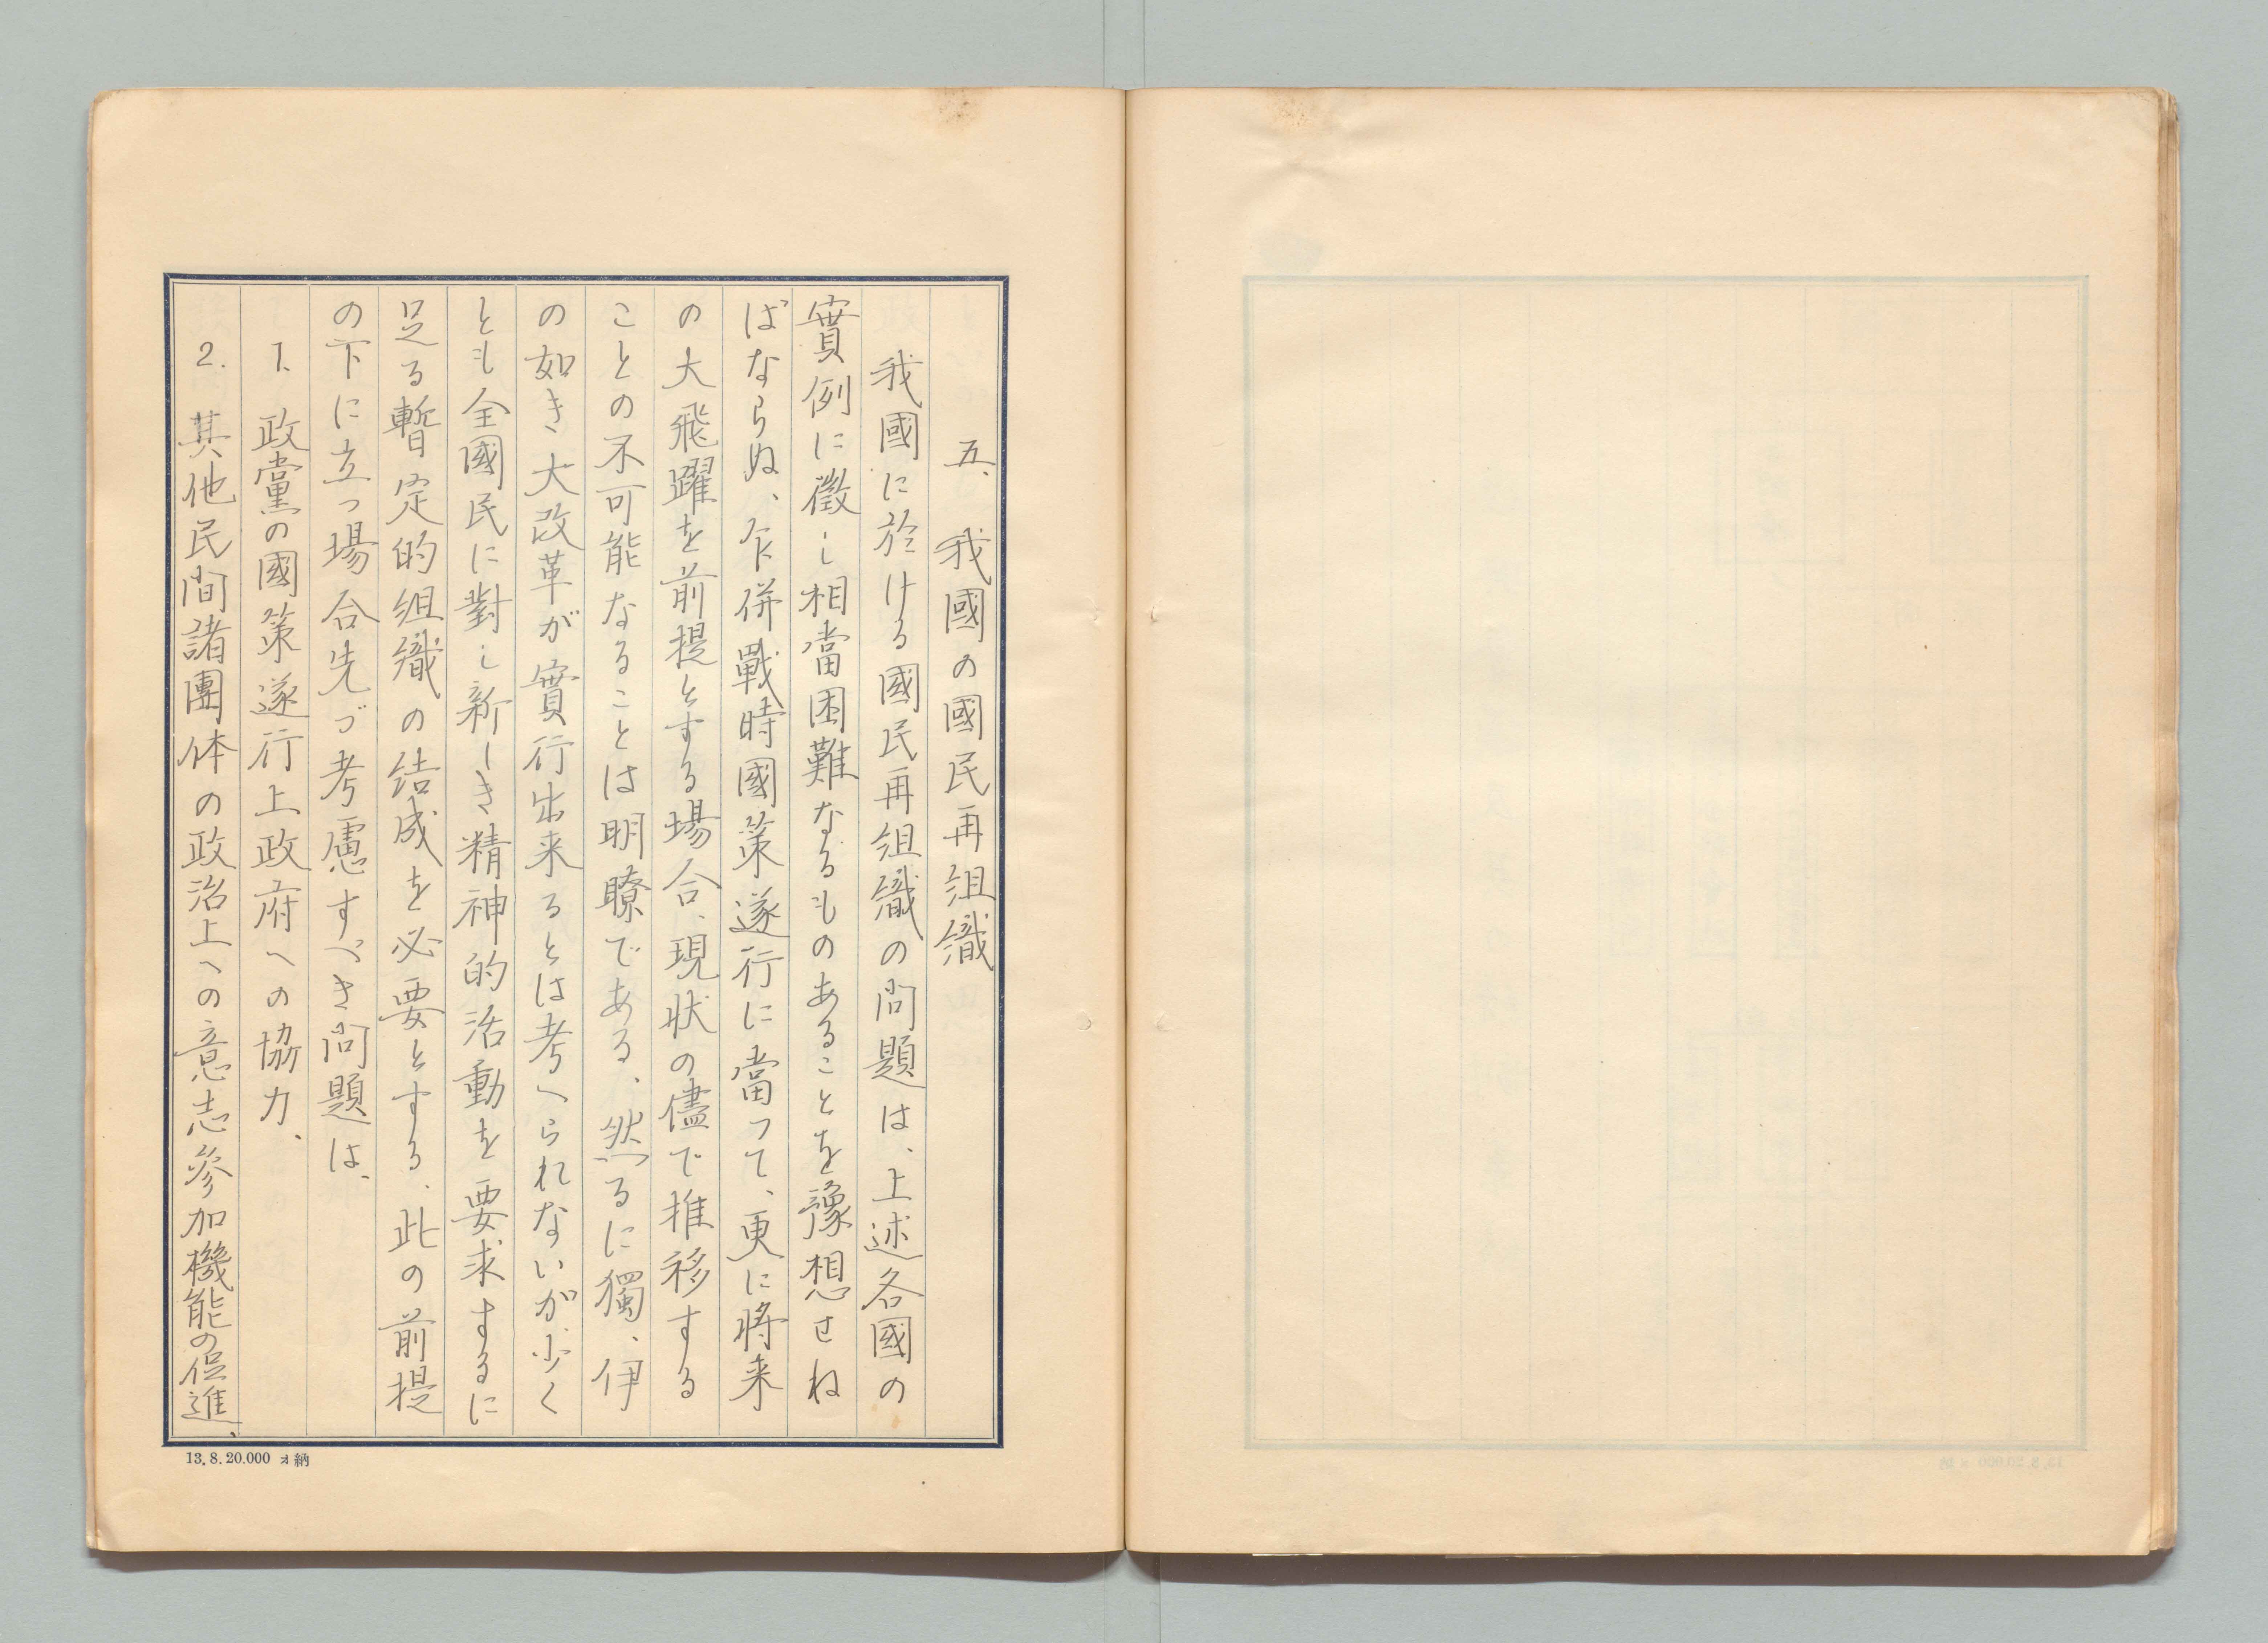 五、我國の國民再組織
我國に於ける國民再組織の問題は、上述各國の
實例に徴し相當困難なるものあることを豫想せね
ばならぬ、乍併戰時國策遂行に當つて、更に將来
の大飛躍を前提とする場合、現状の儘で推移する
ことの不可能なることは明瞭である、然るに獨、伊
の如き大改革が實行出来るとは考へられないが少く
とも全國民に對し新しき精神的活動を要求するに
足る暫定的組織の結成を必要とする、此の前提
の下に立つ場合先づ考慮すべき問題は、
1、政黨の國策遂行上政府への協力、
2. 其他民間諸團体の政治上への意志參加機能の促進、
13.8.20.000 ォ納